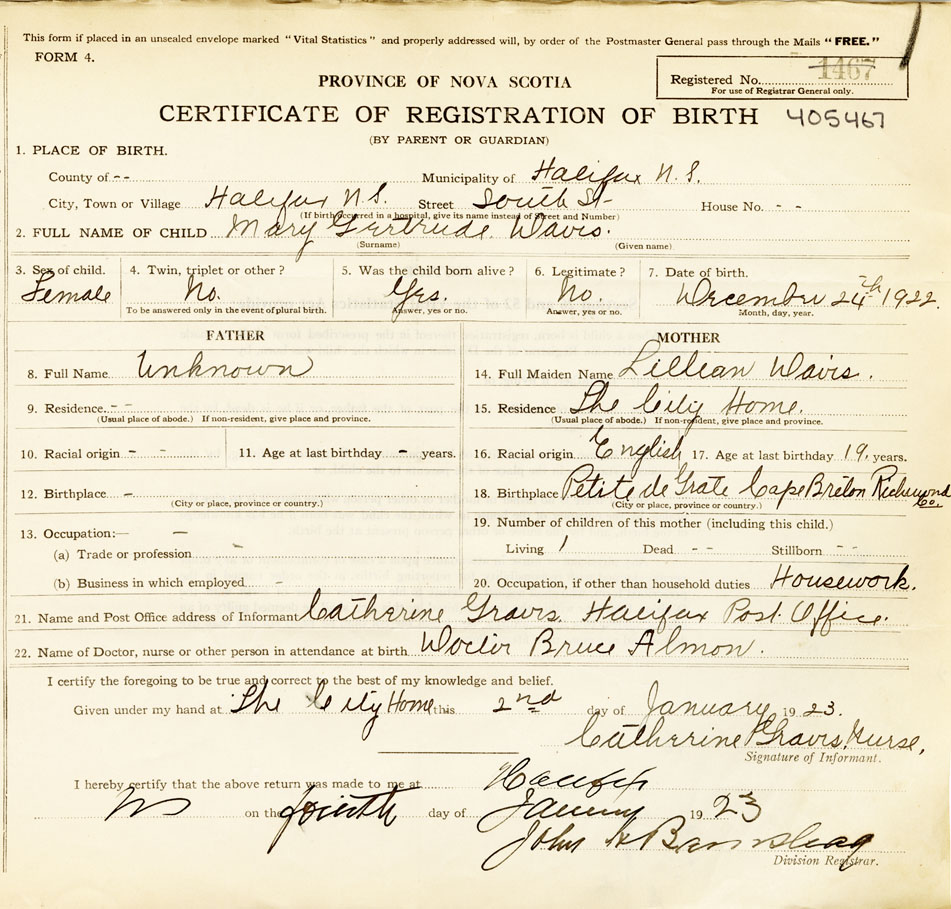 This form if placed in an unsealed envelope marked "Vital Statistics" and properly addressed will, by order of the Postmaster General pass through the Mails "FREE."
FORM 4.
PROVINCE OF NOVA SCOTIA
Registered No. 1467
For use of Registrar General only.
CERTIFICATE OF REGISTRATION OF BIRTH 405467
(BY PARENT OR GUARDIAN)
1. PLACE OF BIRTH.
County of -- Municipality of Halifax N.S.
City, Town or Village Halifax N.S. Street South St- House No. - -
(If birth occurred in a hospital, give its name instead of Street and Number)
2. FULL NAME OF CHILD Mary Gertrude Davis.
(Surname) (Given name)
3. Sex of child. 4. Twin, triplet or other? 5. Was the child born alive? 6. Legitimate? 7. Date of birth.
Female No. Yes. No. December 24th 1922.
To be answered only in the event of plural birth. Answer, yes or no. Answer, yes or no. Month, day, year.
FATHER MOTHER
8. Full Name Unknown 14. Full Maiden Name Lillian Davis.
9. Residence. - - 15. Residence The City Home.
(Usual place of abode.) If non-resident, give place and province. (Usual place of abode.) If non-resident, give place and province.
10. Racial origin - - 11. Age at last birthday - years. 16. Racial origin English 17. Age at last birthday 19. years.
12. Birthplace - 18. Birthplace Petite de Grate Cape Breton Richmond Co.
(City or place, province or country.) (City or place, province or country.)
13. Occupation:— — 19. Number of children of this mother (including this child.)
(a) Trade or profession - Living 1 Dead - - Stillborn - -
(b) Business in which employed - 20. Occupation, if other than household duties Housework.
21. Name and Post Office address of Informant Catherine Gravis. Halifax Post Office.
22. Name of Doctor, nurse or other person in attendance at birth Doctor Bruce Almon.
I certify the foregoing to be true and correct to the best of my knowledge and belief.
Given under my hand at The City Home this 2nd day of January 1923.
Catherine Gravis, Nurse,
Signature of Informant.
I hereby certify that the above return was made to me at Halifax
NS on the fourth day of January 1923
John H
Division Registrar.